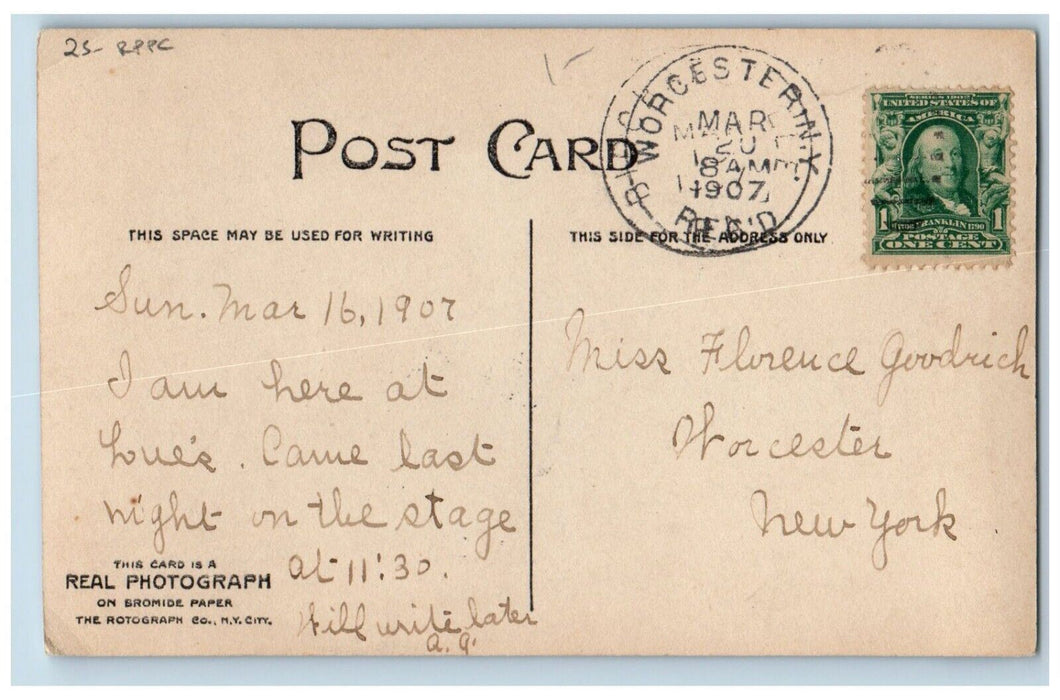 25- RPPC
POST CARD
WORCESTER, N.Y.
MAR
20
8 AM
1907
REC'D
SERIES 1902
UNITED STATES OF
AMERICA
FRANKLIN 1790
1 1
POSTAGE
ONE CENT
THIS SPACE MAY BE USED FOR WRITING
THIS SIDE FOR THE ADDRESS ONLY
Sun. Mar 16, 1907
I am here at
Lue's. Came last
night on the stage
at 11:30.
Will write later
a. g.
Miss Florence Goodrich
Worcester
New York
THIS CARD IS A
REAL PHOTOGRAPH
ON BROMIDE PAPER
THE ROTOGRAPH CO., N.Y. CITY.